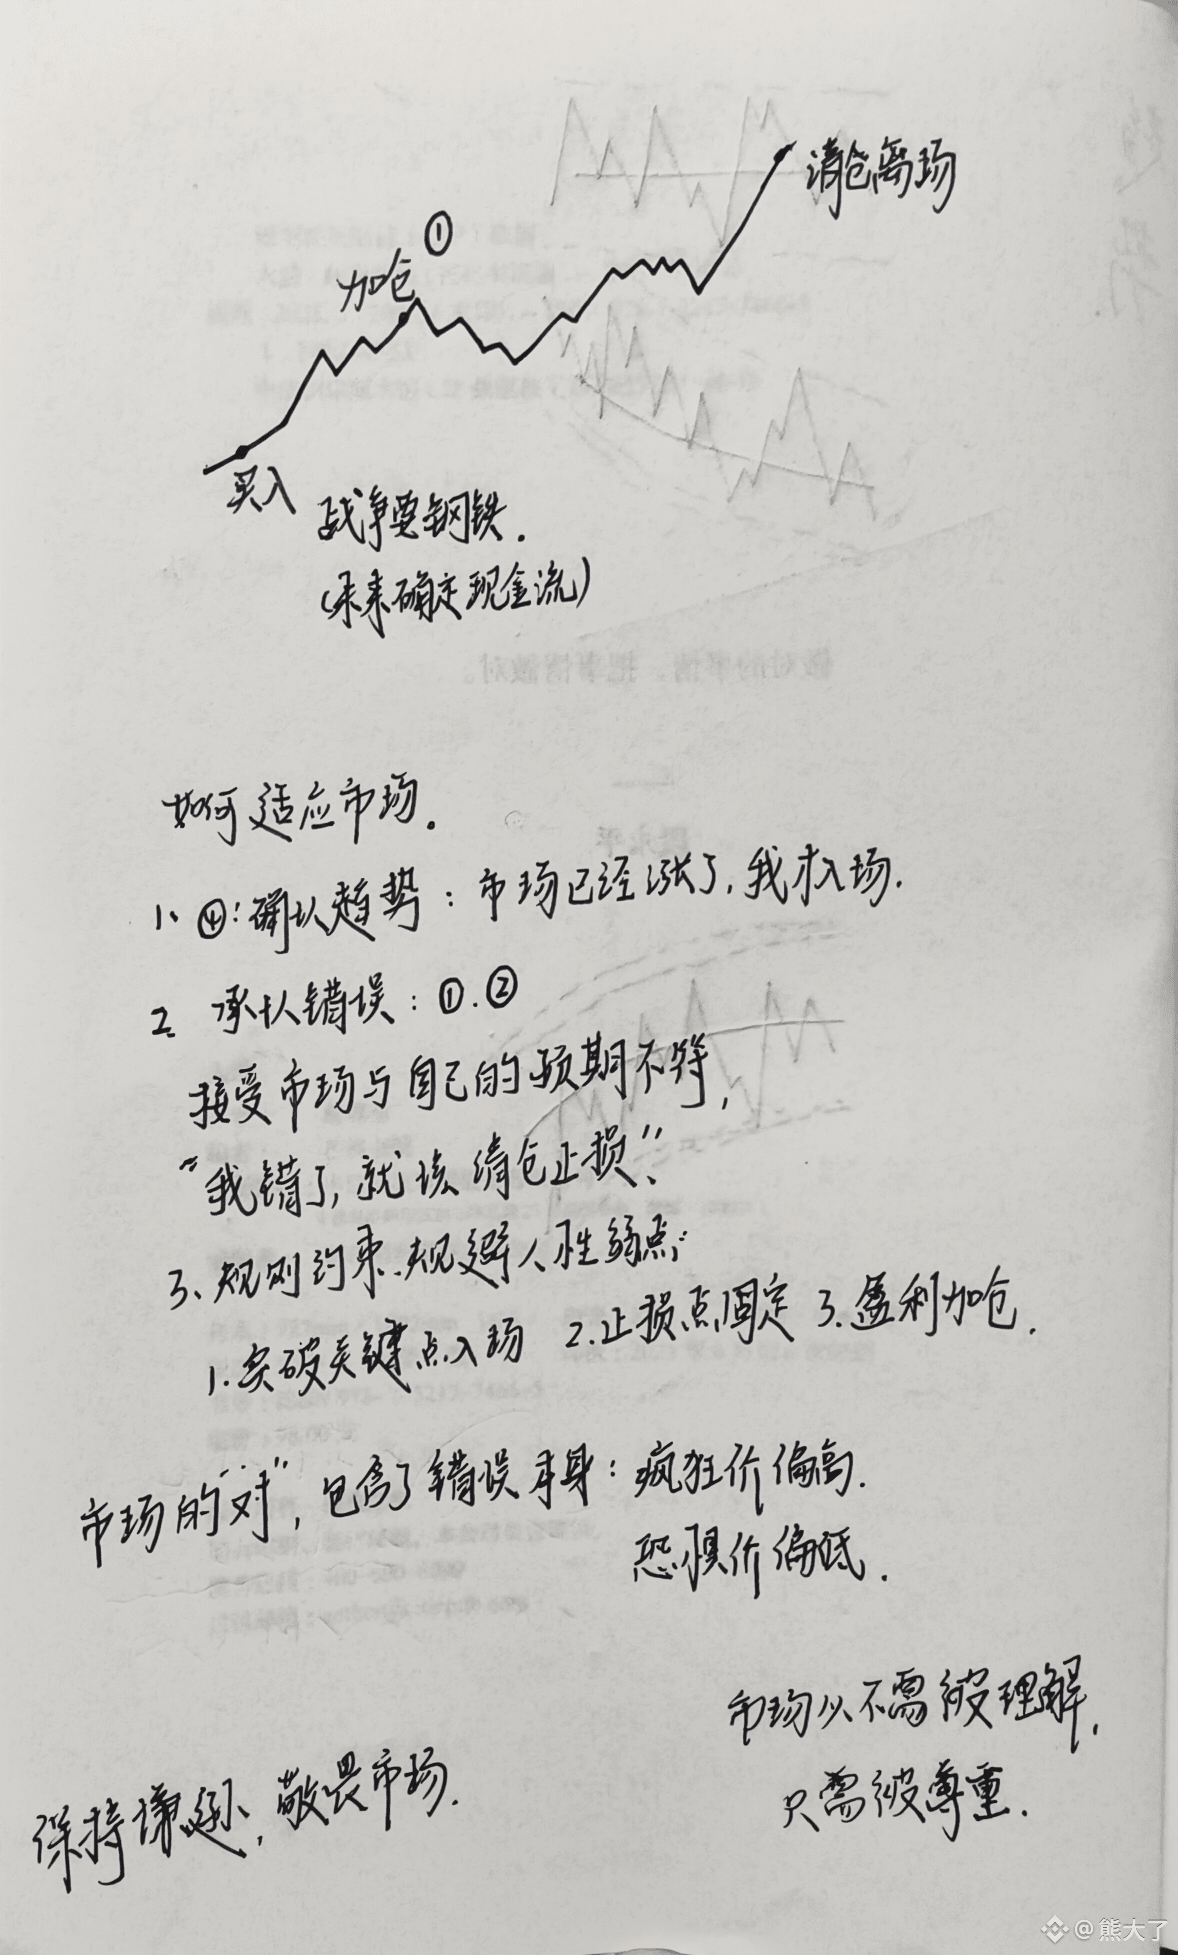 清仓离场
①
加仓
买入
战争要钢铁.
(未来确定现金流)
做对的事情,把事情做对。
如何适应市场.
1、④:确认趋势:市场已经涨了,我才入场.
2 承认错误:①.②
接受市场与自己的预期不符,
“我错了,就该清仓止损”、
3、规则约束.规避人性弱点:
1.突破关键点入场 2.止损点固定 3.盈利加仓.
市场的“对”,包含了错误本身:疯狂价偏高.
恐惧价偏低.
市场从不需被理解,
只需被尊重.
保持谦逊,敬畏市场.
@熊大了